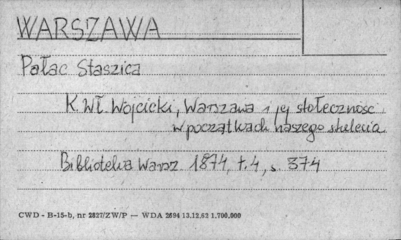 WARSZAWA
Pałac Staszica
K. Wł. Wójcicki, Warszawa i jej stołeczność
w początkach naszego stulecia
Biblioteka Warsz. 1874, t. 4, s. 374
CWD - B-15-b, nr 2827/ZW/P — WDA 2694 13.12.62 1.700.000